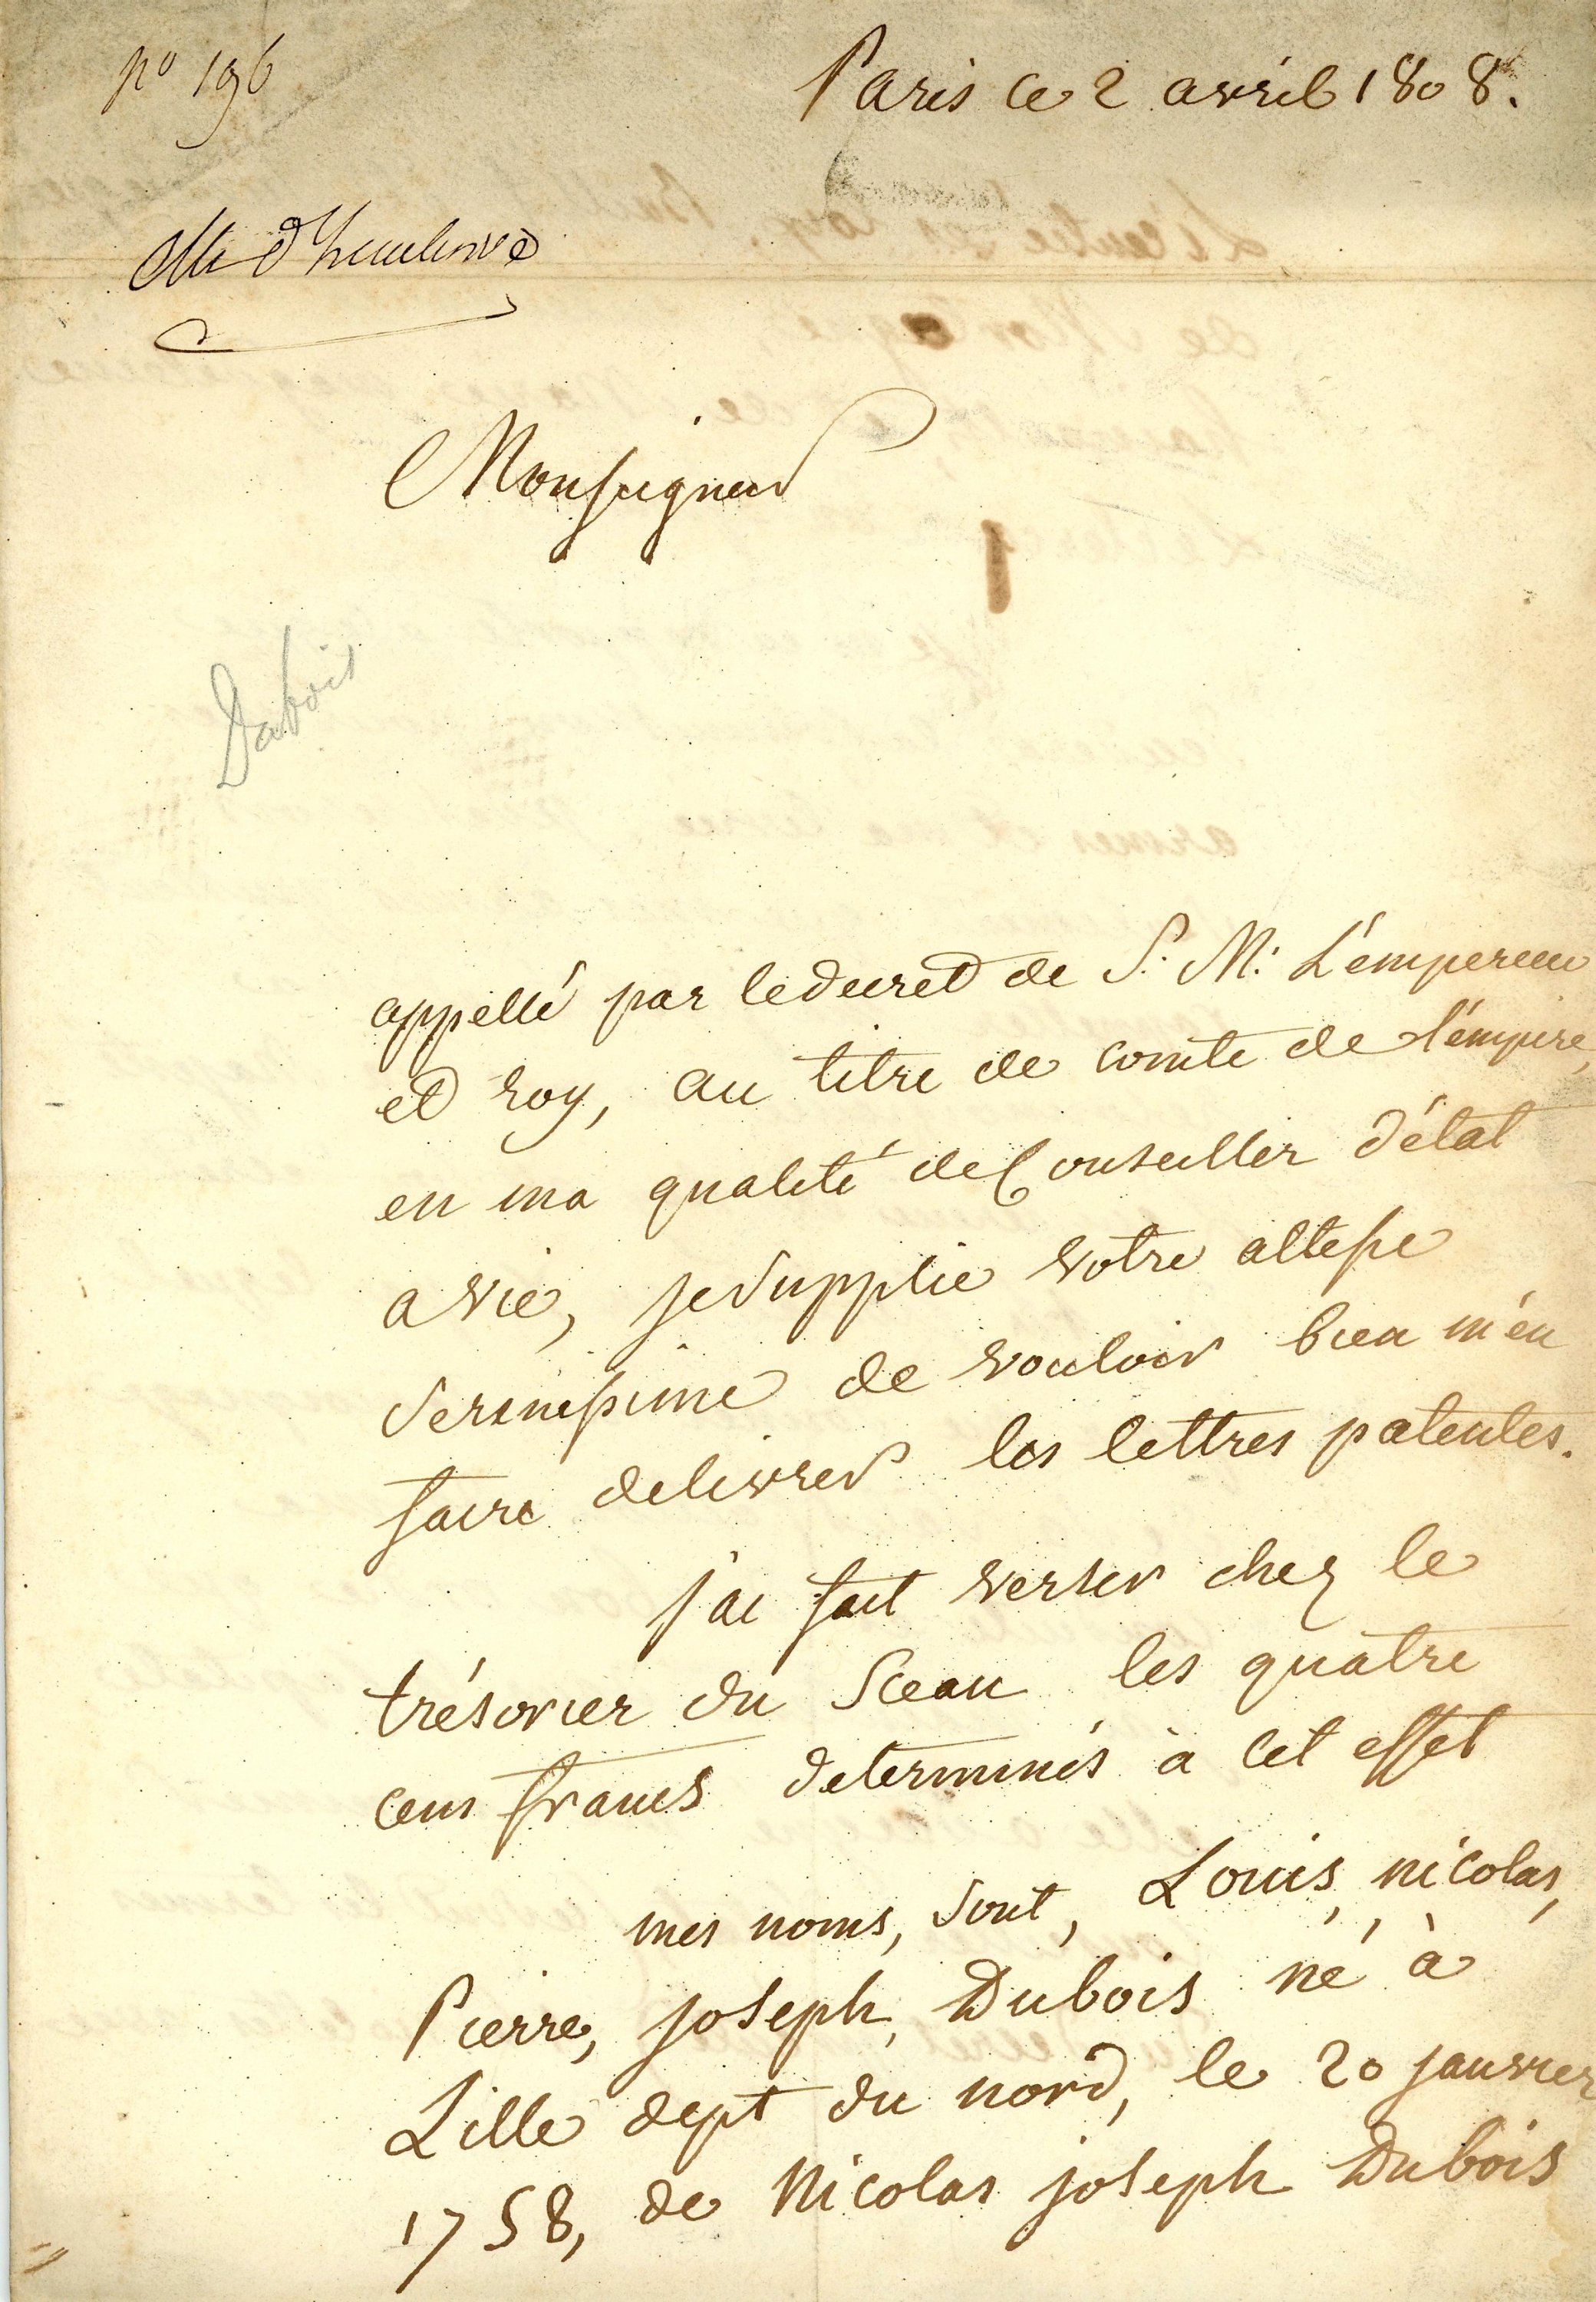 n° 196
Paris ce 2 avril 1808.
Mr d'
Monseigneur
Dubois
appellé par le decret de S. M. L'émpereur
et roy, au titre de comte de l'émpire,
en ma qualité de Conseiller d'état
a vie, je supplie votre altesse
serenissime de vouloir bien m'en
faire delivrer les lettres patentes.
j'ai fait verser chez le
trésorier du Sceau les quatre
cens francs determinés à cet effet
mes noms, sont, Louis, nicolas,
Pierre, joseph, Dubois né à
Lille dept du nord, le 20 janvier
1758, de Nicolas joseph Dubois